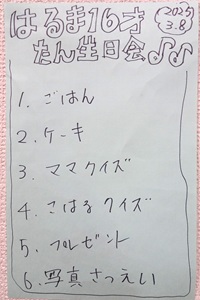 はるま16才
たん生日会♪♪
2025
3.8
1. ごはん
2. ケーキ
3. ママクイズ
4. こはるクイズ
5. プレゼント
6. 写真さつえい